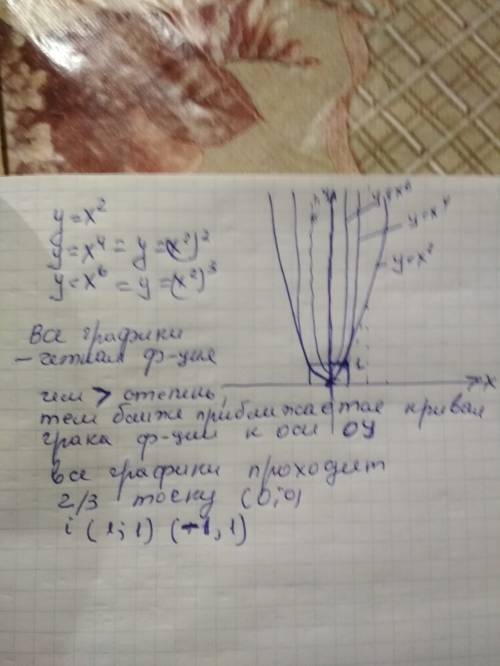 y=x²
y=x⁴ = y=(x²)²
y=x⁶ = y=(x²)³
Все графики
– четная ф-ция
чем > степень,
тем ближе приближается кривая
ф-ции к оси OY
все графики проходят
ч/з точку (0;0)
і (1;1) (-1,1)
y
y=x⁶
y=x⁴
y=x²
1
x